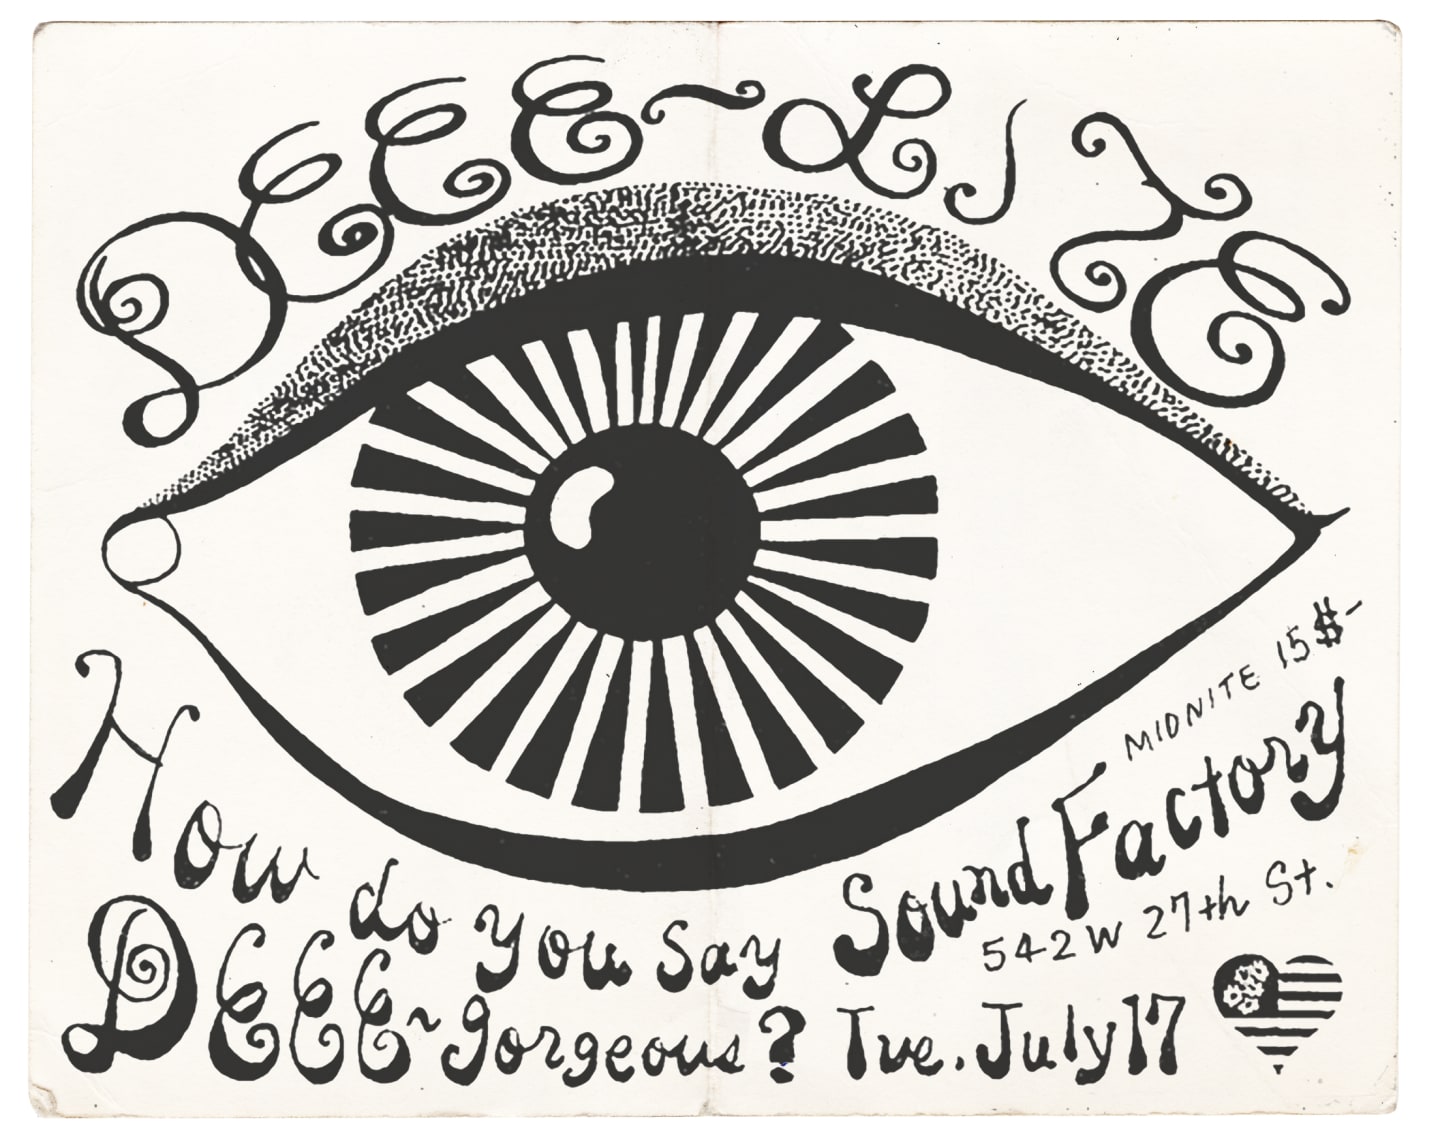 DEEE~LITE
How do you Say
DEEE~gorgeous?
MIDNITE 15$-
Sound Factory
542 W 27th St.
Tue. July 17